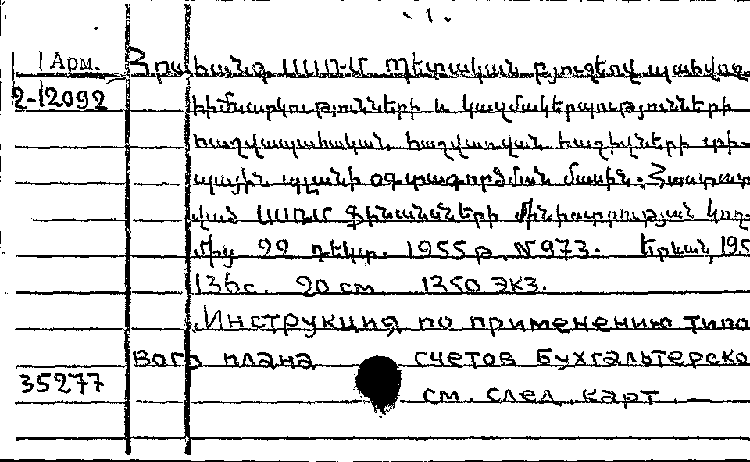 1.
Арм.
Հրահանգ ՍՍՌՄ Պետական բյուջեով պահվող
2-12092
հիմնարկությունների և կազմակերպությունների
հաշվապահական հաշվառման հաշիվների տի-
պային պլանի օգտագործման մասին: Հաստատ
ված ՍՍՌՄ Ֆինանսների մինիստրության կող-
մից 22 դեկտ. 1955 թ. N 973. Երևան, 195
136с. 20 см 1350 экз.
Инструкция по применению типо
вого плана счетов бухгалтерско
35277
см. след. карт. —